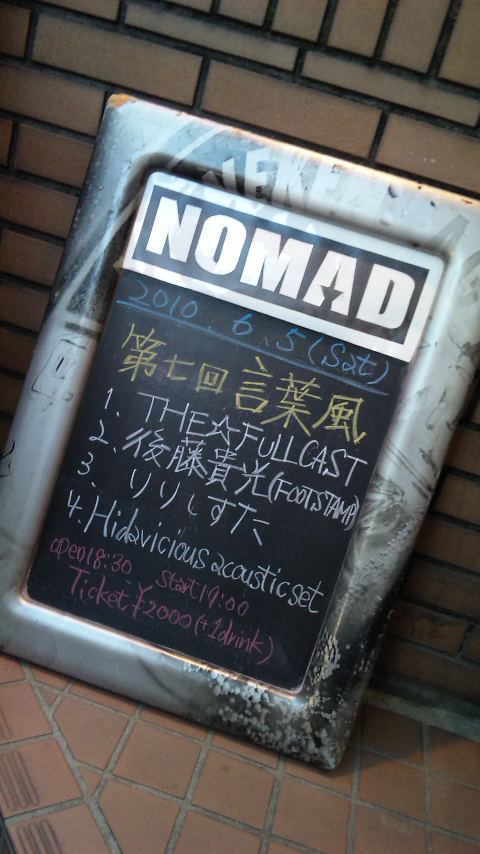 NOMAD
2010.6.5(Sat)
第七回 言葉風
1. THE☆FULLCAST
2. 後藤貴光(FOOTSTAMP)
3. りりしすた
4. Hidavicious acoustic set
open18:30 start19:00
Ticket ¥2000(+1drink)